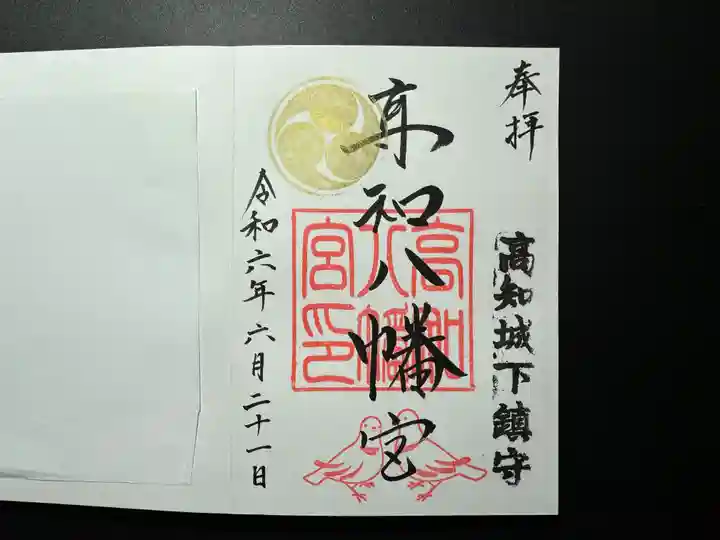 奉拝
高知城下鎮守
高知八幡宮
高知八幡宮印
令和六年六月二十一日